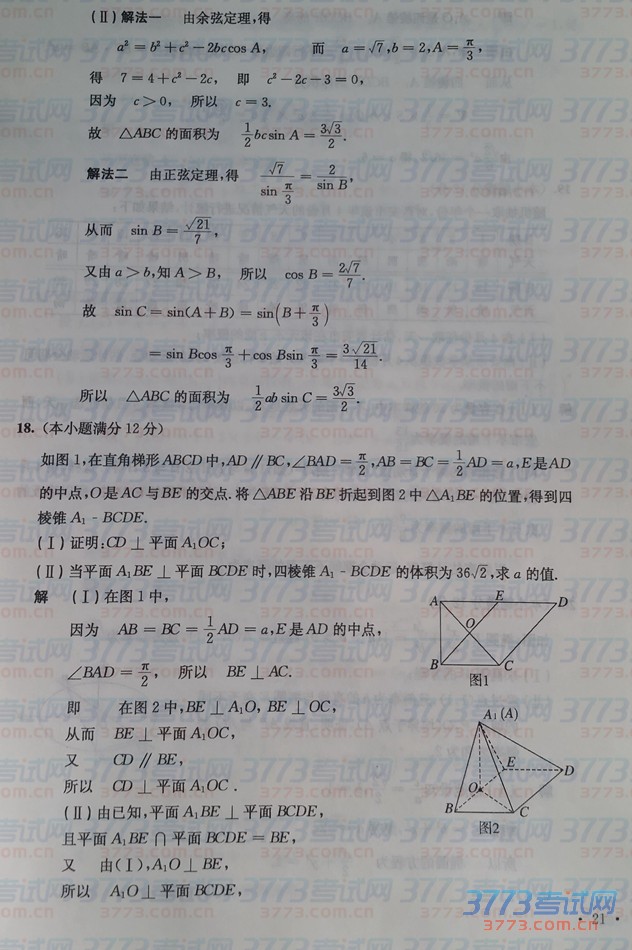 (Ⅱ)解法一 由余弦定理,得
a² = b² + c² − 2bccos A, 而 a = √7, b = 2, A = π/3,
得 7 = 4 + c² − 2c, 即 c² − 2c − 3 = 0,
因为 c > 0, 所以 c = 3.
故 △ABC 的面积为 1/2 bcsin A = 3√3/2.
解法二 由正弦定理,得 √7/sin π/3 = 2/sin B,
从而 sin B = √21/7,
又由 a > b,知 A > B, 所以 cos B = 2√7/7.
故 sin C = sin(A + B) = sin(B + π/3)
= sin Bcos π/3 + cos Bsin π/3 = 3√21/14.
所以 △ABC 的面积为 1/2 ab sin C = 3√3/2.
18.(本小题满分12分)
如图1,在直角梯形ABCD中,AD // BC,∠BAD = π/2,AB = BC = 1/2 AD = a,E是AD
的中点,O是AC与BE的交点.将△ABE沿BE折起到图2中△A₁BE的位置,得到四
棱锥A₁ - BCDE.
(Ⅰ)证明:CD ⊥ 平面A₁OC;
(Ⅱ)当平面A₁BE ⊥ 平面BCDE时,四棱锥A₁ - BCDE的体积为36√2,求a的值.
解 (Ⅰ)在图1中,
因为 AB = BC = 1/2 AD = a,E是AD的中点,
∠BAD = π/2, 所以 BE ⊥ AC.
即 在图2中,BE ⊥ A₁O, BE ⊥ OC,
从而 BE ⊥ 平面A₁OC,
又 CD // BE,
所以 CD ⊥ 平面A₁OC.
(Ⅱ)由已知,平面A₁BE ⊥ 平面BCDE,
且平面A₁BE ∩ 平面BCDE = BE,
又 由(Ⅰ),A₁O ⊥ BE,
所以 A₁O ⊥ 平面BCDE,
A E D
O
B C
图1
A₁(A)
E
D
O
B C
图2
· 21 ·
3773考试网
www.3773.com.cn